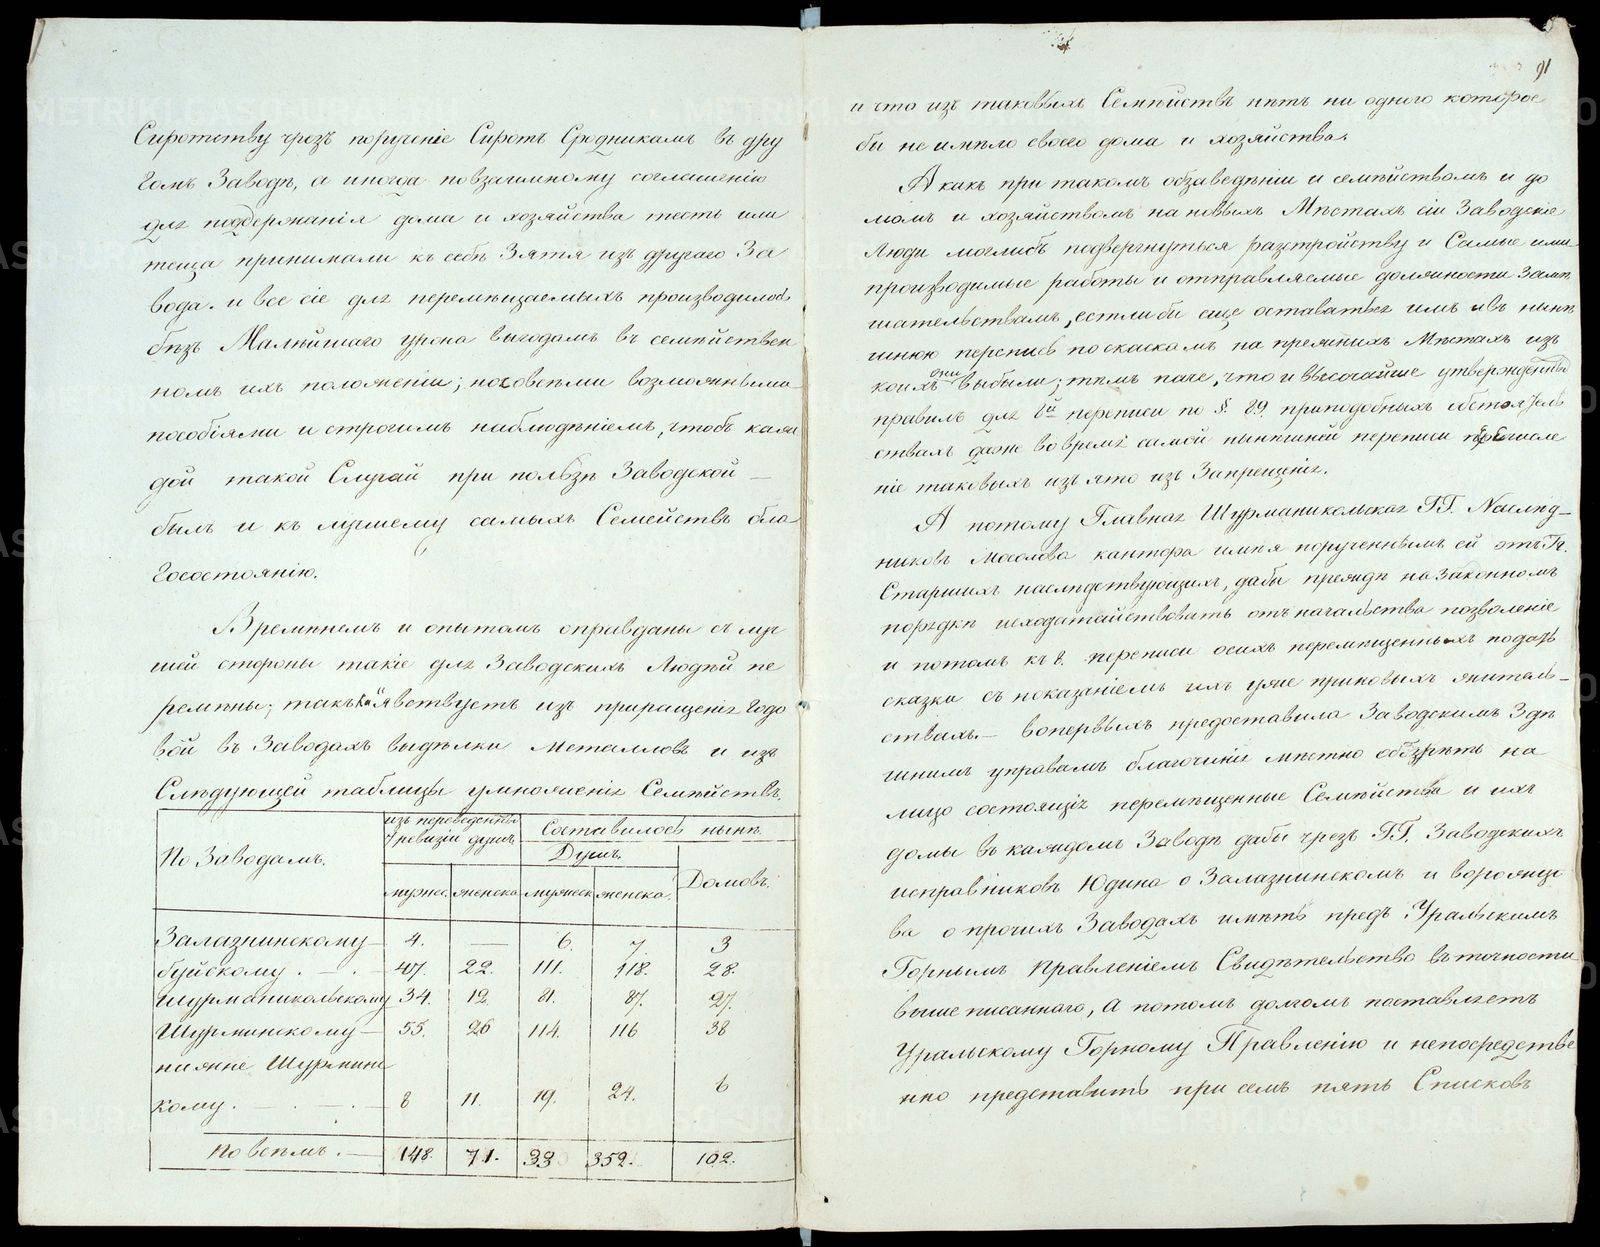 Сиротству чрезъ порученіе Сиротъ Сродникамъ въ дру
гомъ Заводѣ, а иногда повзаимному соглашенію
для поддержанія дома и хозяйства тесть или
теща принимали къ себѣ Зятя изъ другаго За
вода. и все сіе для перемѣщаемыхъ производилось
безъ Малѣйшаго урона выгодамъ въ семѣйствен
номъ ихъ положеніи; но совсѣми возможными
пособіями и строгимъ наблюдѣніемъ, чтобъ каж
дой такой Случай при пользѣ Заводской
былъ и къ лучшему самыхъ Семействъ бла
госостоянію.
Времѣнемъ и опытомъ оправданы съ луч
шей стороны такіе для Заводскихъ Людѣй пе
ремѣны; такъ какъ явствуетъ изъ приращенія годо
вой въ Заводахъ выдѣлки металловъ и изъ
Слѣдующей таблицы умноженія Семѣйствъ.
По Заводамъ. изъ переведенныхъ Составилось нынѣ.
7 ревизіи душъ. Душъ. Домовъ.
мужес. женска мужеск женска.
Залазнинскому 4. — 6. 7. 3
буйскому . — . 47. 22. 111. 118. 28.
Шурманикольскому 34. 12. 81. 87. 27.
Шурминскому — 55. 26 114. 116 38
нижне Шурминс
кому. — . — . — 8 11. 19. 24. 6
По всѣмъ. — 148. 71. 33 352. 102.
91
и что изъ таковыхъ Семѣйствъ нѣтъ ни одного которое
бы не имѣло своего дома и хозяйства.
А какъ при такомъ обзаведѣніи и семѣйствомъ и до
момъ и хозяйствомъ на новыхъ Мѣстахъ сіи Заводскіе
Люди моглибъ подвергнуться разстройству и Самые ими
производимые работы и отправляемые должности Замѣ
шательствамъ, естли бы еще оставаться имъ и въ нынѣ
шнюю перепись по скаскамъ на прежнихъ Мѣстахъ изъ
коихъ они выбыли; тѣмъ паче, что и высочайше утвержденныхъ
правилъ для 8й переписи по §. 89. приподобныхъ обстоятель
ствахъ даже во время самой нынѣшней переписи перечисле
ніе таковыхъ изъято изъ Запрещенія.
А потому Главная Шурманикольская ГГ. Наслѣд
никовъ Мосолова кантора имѣя порученнымъ ей отъ Гг.
Старшихъ наслѣдствующихъ, дабы прежде на законномъ
порядкѣ исходатайствовать отъ начальства позволеніе
и потомъ къ 8. переписи осихъ перемѣщенныхъ подать
сказки съ показаніемъ ихъ уже приновыхъ житель
ствахъ. — вопервыхъ предоставила Заводскимъ Здѣ
шнимъ управамъ благочинія мѣстно обозрѣть на
лицо состоящія перемѣщенные Семѣйства и ихъ
домы въ каждомъ Заводѣ дабы чрезъ ГГ. Заводскихъ
исправниковъ Юдина о Залазнинскомъ и воронцо
ва о прочихъ Заводахъ имѣть предъ Уральскимъ
Горнымъ Правленіемъ Свидѣтельство въ точности
вышеписаннаго, А потомъ долгомъ поставляетъ
Уральскому Горному Правленію и непосредстве
нно представить при семъ пять Списковъ